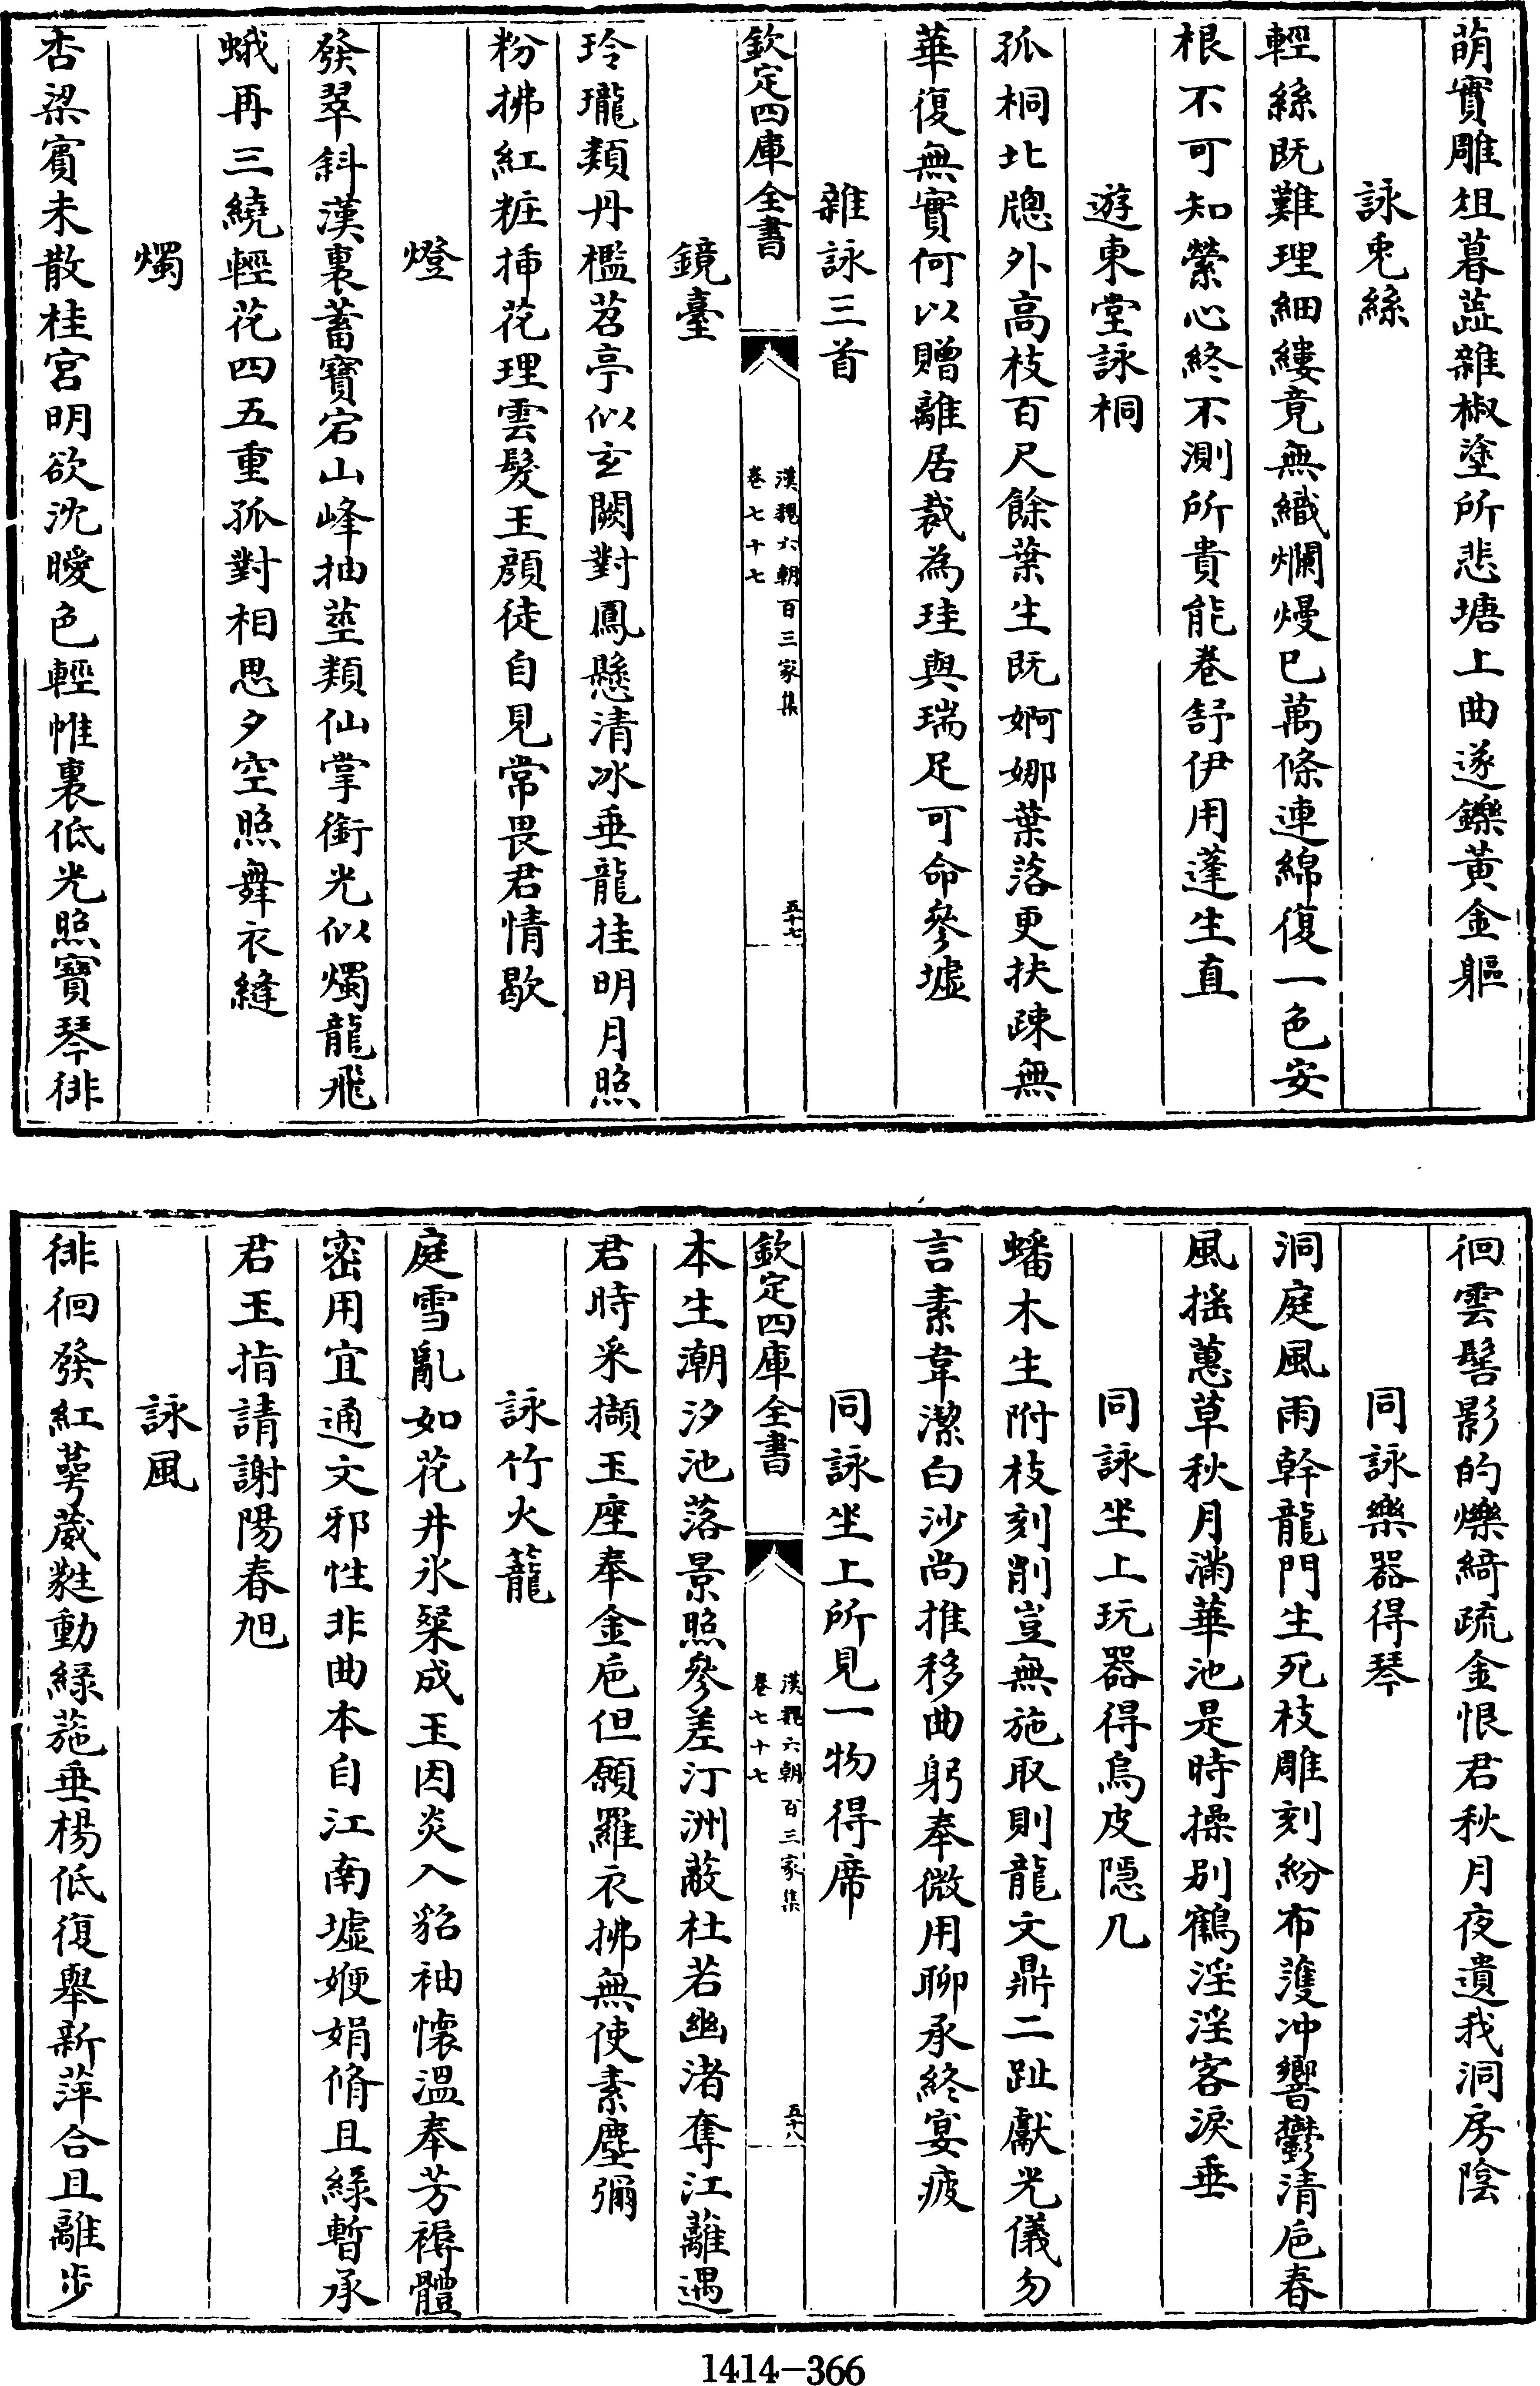 萌實雕俎暮蘂雜椒塗所悲塘上曲遂鑠黃金軀
詠兎絲
輕絲既難理細縷竟無織爛熳已萬條連綿復一色安
根不可知縈心終不測所貴能卷舒伊用蓬生直
遊東堂詠桐
孤桐北牕外高枝百尺餘葉生既婀娜葉落更扶踈無
華復無實何以贈離居裁為珪與瑞足可命參墟
雜詠三首
欽定四庫全書
漢魏六朝百三家集
卷七十七
五十七
鏡臺
玲瓏類丹檻苕亭似玄闕對鳳懸清冰垂龍挂明月照
粉拂紅粧揷花理雲髮玉顔徒自見常畏君情歇
燈
發翠斜漢裏蓄寶宕山峰抽莖類仙掌銜光似燭龍飛
蛾再三繞輕花四五重孤對相思夕空照舞衣縫
燭
杏梁賓未散桂宮明欲沈曖色輕帷裏低光照寶琴徘
徊雲髻影的爍綺疏金恨君秋月夜遺我洞房陰
同詠樂器得琴
洞庭風雨幹龍門生死枝雕刻紛布濩冲響鬱清巵春
風摇蕙草秋月滿華池是時操别鶴淫淫客淚垂
同詠坐上玩器得烏皮隱几
蟠木生附枝刻削豈無施取則龍文鼎二趾獻光儀勿
言素韋潔白沙尚推移曲躬奉微用聊承終宴疲
同詠坐上所見一物得席
欽定四庫全書
漢魏六朝百三家集
卷七十七
五十八
本生潮汐池落景照參差汀洲蔽杜若幽渚奪江蘺遇
君時采擷玉座奉金巵但願羅衣拂無使素塵彌
詠竹火籠
庭雪亂如花井氷粲成玉因炎入貂袖懷溫奉芳褥體
密用宜通文邪性非曲本自江南墟㛹娟脩且綠暫承
君玉指請謝陽春旭
詠風
徘徊發紅萼葳蕤動綠葹垂楊低復舉新萍合且離步
1414—366